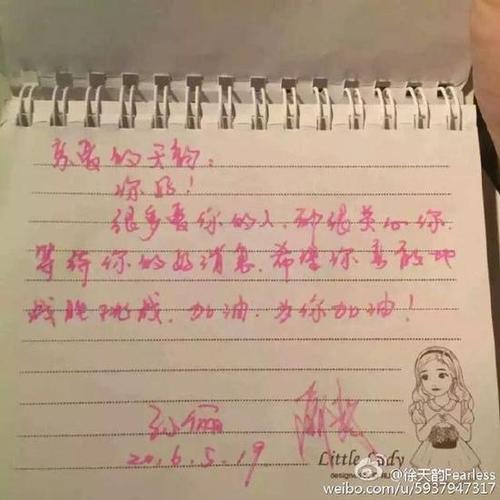 亲爱的天韵：
你好！
很多爱你的人，都很关心你，
等待你的好消息，希望你勇敢地
战胜挑战，加油，为你加油！
孙俪
2016.5.19
Little Lady
@徐天韵Fearless
weibo.com/u/5937947317